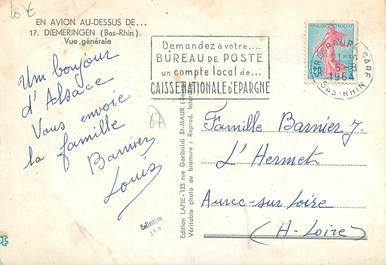 10 €
EN AVION AU-DESSUS DE...
17. DIEMERINGEN (Bas-Rhin)
Vue générale
Un bonjour
d'Alsace
Vous envoie
la famille
Barnier
Louis
Demandez à votre....
BUREAU DE POSTE
un compte local de...
CAISSE NATIONALE D'EPARGNE
STRASBOURG GARE
1964
BAS-RHIN
Edition LAPIE-125 rue Garibaldi St-MAUR (Seine)
Véritable photo au bromure : Reprod. Interd.
Collection
Famille Barnier J.
L'Hermet
Aurec-sur-Loire
(H-Loire)